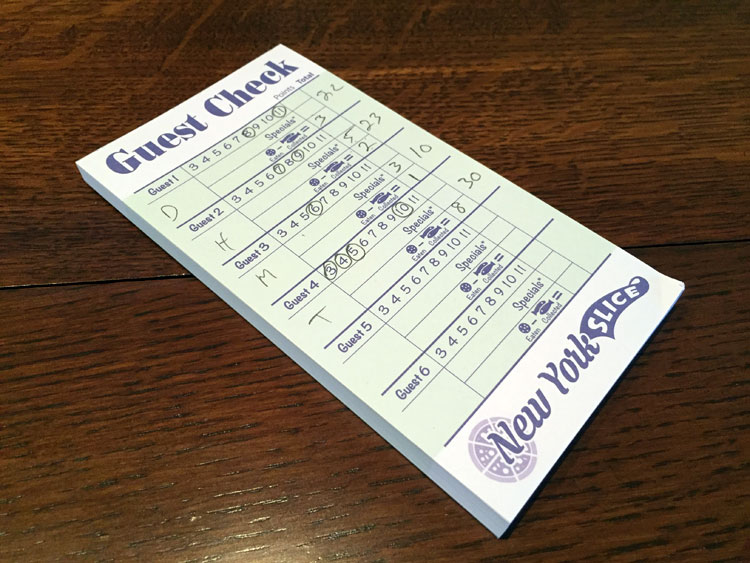 Guest Check
Points Total
Guest 1 3 4 5 6 7 8 9 10 11 22
D Specials* 3
Eaten Collected
Guest 2 3 4 5 6 7 8 9 10 11 5 23
H Specials* 2
Eaten Collected
Guest 3 3 4 5 6 7 8 9 10 11 3 10
M Specials* 1
Eaten Collected
Guest 4 3 4 5 6 7 8 9 10 11 30
T Specials* 8
Eaten Collected
Guest 5 3 4 5 6 7 8 9 10 11
Specials*
Eaten Collected
Guest 6 3 4 5 6 7 8 9 10 11
Specials*
Eaten Collected
New York SLICE